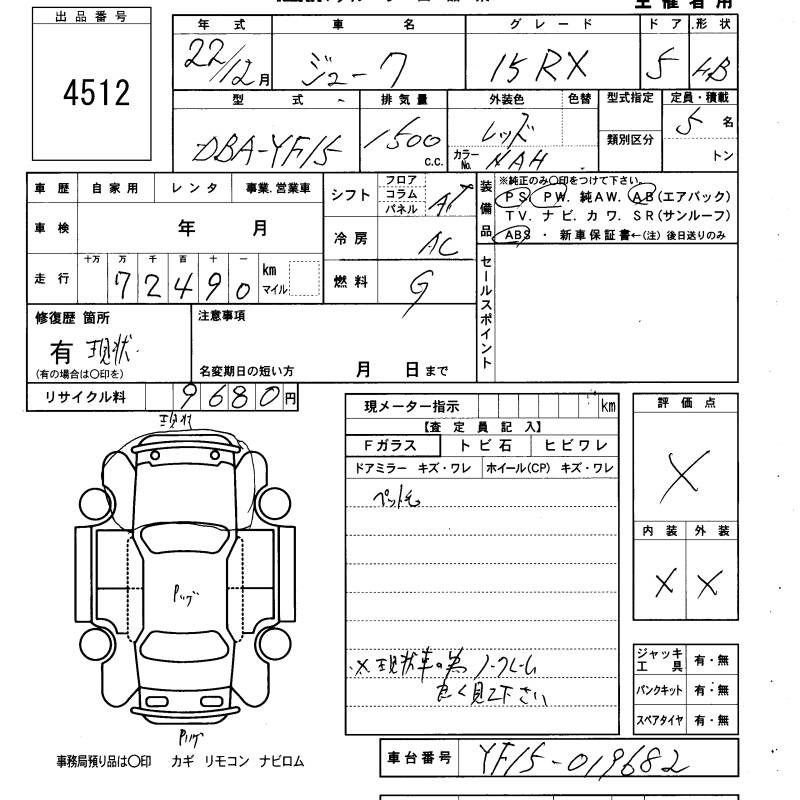 主催者用
出品番号
4512
年式 車名 グレード ドア 形状
22/12月 ジューク 15RX 5 HB
型式 排気量 外装色 色替 型式指定 定員・積載
DBA-YF15 1500 c.c. レッド 類別区分 5 名
カラーNo. NAH トン
車歴 自家用 レンタ 事業.営業車
車検 年 月
走行 十万 万 千 百 十 一
72490 km マイル
シフト フロア コラム パネル AT
冷房 AC
燃料 G
装備品
※純正のみ〇印をつけて下さい。
PS. PW. 純AW. AB(エアバック)
TV. ナビ. カワ. SR(サンルーフ)
ABS ・ 新車保証書←(注) 後日送りのみ
セールスポイント
修復歴 箇所
有 現状
(有の場合は〇印を)
注意事項
名変期日の短い方 月 日まで
リサイクル料 9680円
現状
現メーター指示 km
【査定員記入】
Fガラス トビ石 ヒビワレ
ドアミラー キズ・ワレ ホイール(CP) キズ・ワレ
ペット毛
※現状車の為ノークレーム
良く見て下さい
評価点
X
内装 外装
X X
ジャッキ工具 有・無
パンクキット 有・無
スペアタイヤ 有・無
事務局預り品は〇印 カギ リモコン ナビロム
車台番号 YF15-019682